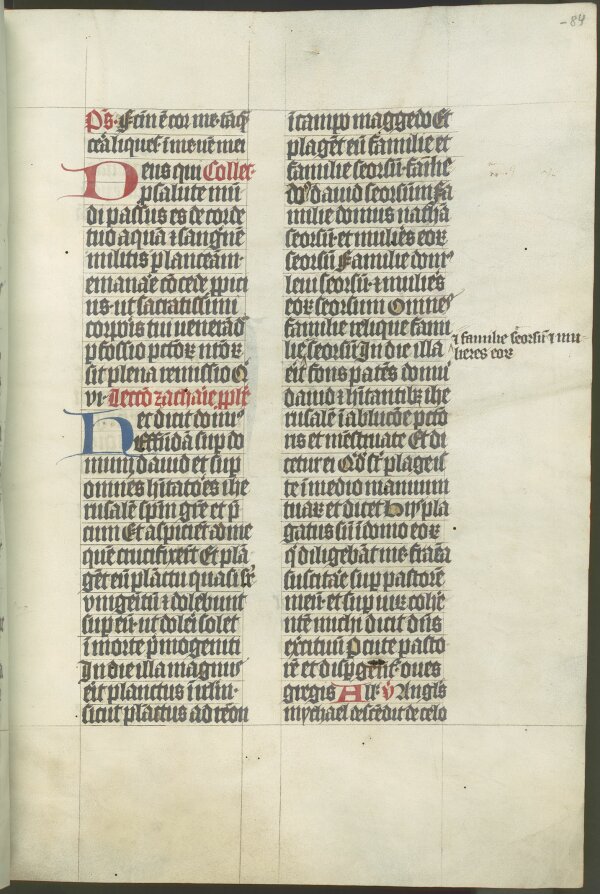 -84
P̄s. Fcm̄ ē cor me. tāq̄
cēa liqueſ in me. ūē mei
Deus qui Collec.
ꝑ ſalute mū
di paſſus es de corde
tuo aquā ⁊ ſangnē
militis planceam̄
emanaē ꝯcede ꝓpici
us. ut ſacratiſſimi
corpoīs tui venerād
ꝑfoſſio pctōꝝ nrōꝝ
ſit plena remiſſio Q̄
vi. Lectō zachaīe ꝓphe
Hec dicit domīꝰ
effūdā ſuꝑ do
mum dauid et ſuꝑ
omnes hītatōes ihe
ruſalē ſpm̄ gr̄e et p̄
cum Et aſpiciēt ad me
quē crucifixerūt Et plā
gēt eū plāctu quaſi ſuꝑ
vnigeitū ⁊ dolebunt
ſuꝑ eū. ut doleri ſolet
ī morte pͥmogeniti
In die illa magnus
eīt planctus ī irl̄m.
ſicut plāctus adreon
ī campo maggedo Et
plagēt eū familie et
familie ſeorſū. faīlie
doꝰ dauid ſeorſūm Fa
milie domus nathā
ſeorſū. et mulieſ eoꝝ
ſeorſū Familie domꝰ
leui ſeorſū. ⁊ mulieſ
eoꝝ ſeorſum Omneſ
familie relique fami
lie ſeorſū In die illa
eīt fons patēs domui
dauid ⁊ hītantibꝫ ihe
ruſalē ī ablucōe pctō
ris et mēſtruate Et di
cetur ei Qͥd ſt̄ plage iſ
te ī medio manuum
tuaꝝ et dicet Hijs pla
gatus ſū ī domo eoꝝ
q̄ diligebāt me. framea
ſuſcitāe ſuꝑ paſtorē
meū. et ſuꝑ uiꝝ coħe
ntē michi dicit dn̄s
exc̄ituū Pcute paſto
rē et diſꝑgent̄ oues
gregis All'. ꝟ Angls
mychael deſcēdit de celo
⁊ familie ſeorſū ⁊ mu
lieres eoꝝ